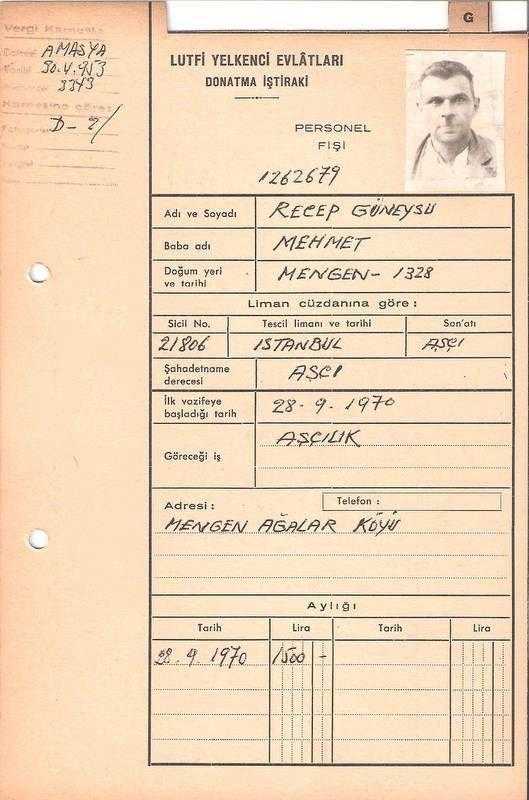 G
Vergi Karnesi
AMASYA
30.V.953
3343
Karnesine göre
D-2/
LUTFİ YELKENCİ EVLÂTLARI
DONATMA İŞTİRAKİ
PERSONEL
FİŞİ
1262679
Adı ve Soyadı RECEP GÜNEYSU
Baba adı MEHMET
Doğum yeri ve tarihi MENGEN - 1328
Liman cüzdanına göre :
Sicil No. Tescil limanı ve tarihi San'atı
21806 ISTANBUL AŞÇI
Şahadetname derecesi AŞÇI
İlk vazifeye başladığı tarih 28-9-1970
Göreceği iş AŞÇILIK
Adresi : Telefon :
MENGEN AĞALAR KÖYÜ
Aylığı
Tarih Lira Tarih Lira
28.9.1970 1500 -